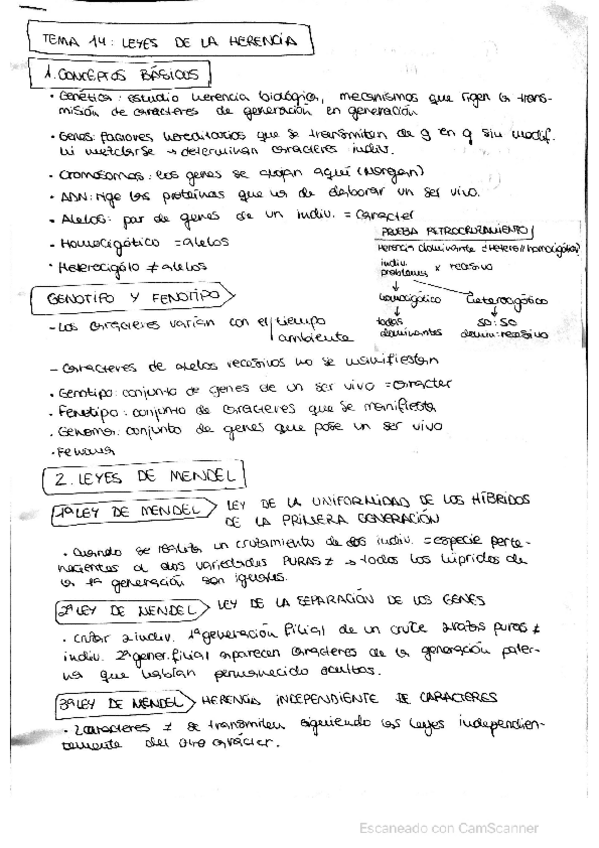 TEMA 14: LEYES DE LA HERENCIA
1. CONCEPTOS BÁSICOS
• Genética: estudio herencia biológica, mecanismos que rigen la trans-
misión de caracteres de generación en generación
• Genes: factores hereditarios que se transmiten de g en g sin modif.
ni mezclarse → determinan caracteres indiv.
• Cromosomas: los genes se alojan aquí (Morgan)
• ADN: rige las proteínas que va de elaborar un ser vivo.
• Alelos: par de genes de un indiv. = carácter
• Homocigótico = alelos
• Heterocigóto ≠ alelos
PRUEBA RETROCRUZAMIENTO
Herencia dominante ¿Hetero//homocigótico?
indiv. problema x recesivo
homocigótico heterocigótico
todos 50:50
dominantes domin:recesivo
GENOTIPO Y FENOTIPO
- Los caracteres varían con el / tiempo
ambiente
- Caracteres de alelos recesivos no se manifiestan
• Genotipo: conjunto de genes de un ser vivo = carácter
• Fenotipo: conjunto de caracteres que se manifiesta
• Genoma: conjunto de genes que posee un ser vivo
2. LEYES DE MENDEL
1ª LEY DE MENDEL LEY DE LA UNIFORMIDAD DE LOS HÍBRIDOS
DE LA PRIMERA GENERACIÓN
• Cuando se realiza un cruzamiento de dos indiv. = especie perte-
necientes a dos variedades PURAS ≠ → todos los híbridos de
la 1ª generación son iguales.
2ª LEY DE MENDEL LEY DE LA SEPARACIÓN DE LOS GENES
• Cruzar 2 indiv. 1ª generación filial de un cruce 2 razas puras ≠
indiv. 2ª gener. filial aparecen caracteres de la generación pater-
na que habían permanecido ocultos.
3ª LEY DE MENDEL HERENCIA INDEPENDIENTE DE CARACTERES
• 2 caracteres ≠ se transmiten siguiendo las leyes independien-
temente del otro carácter.
Escaneado con CamScanner